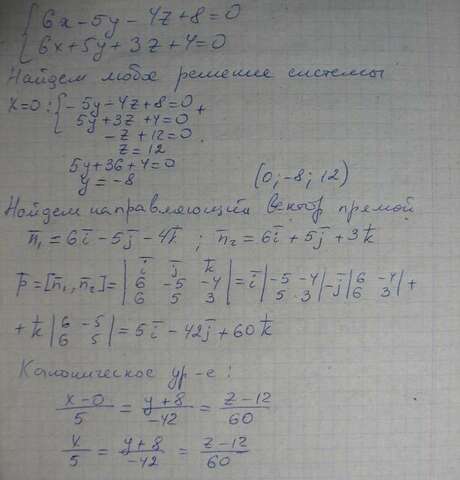 {6x-5y-4z+8=0
{6x+5y+3z+4=0
Найдем любое решение системы
x=0: {-5y-4z+8=0 +
5y+3z+4=0
-z+12=0
z=12
5y+36+4=0
y=-8 (0;-8;12)
Найдем направляющий вектор прямой
n̄₁=6ī-5j̄-4k̄ ; n̄₂=6ī+5j̄+3k̄
p̄=[n̄₁,n̄₂]=|ī j̄ k̄; 6 -5 -4; 6 5 3|=ī|-5 -4; 5 3|-j̄|6 -4; 6 3|+
+k̄|6 -5; 6 5|=5ī-42j̄+60k̄
Каноническое ур-е:
(x-0)/5=(y+8)/-42=(z-12)/60
x/5=(y+8)/-42=(z-12)/60